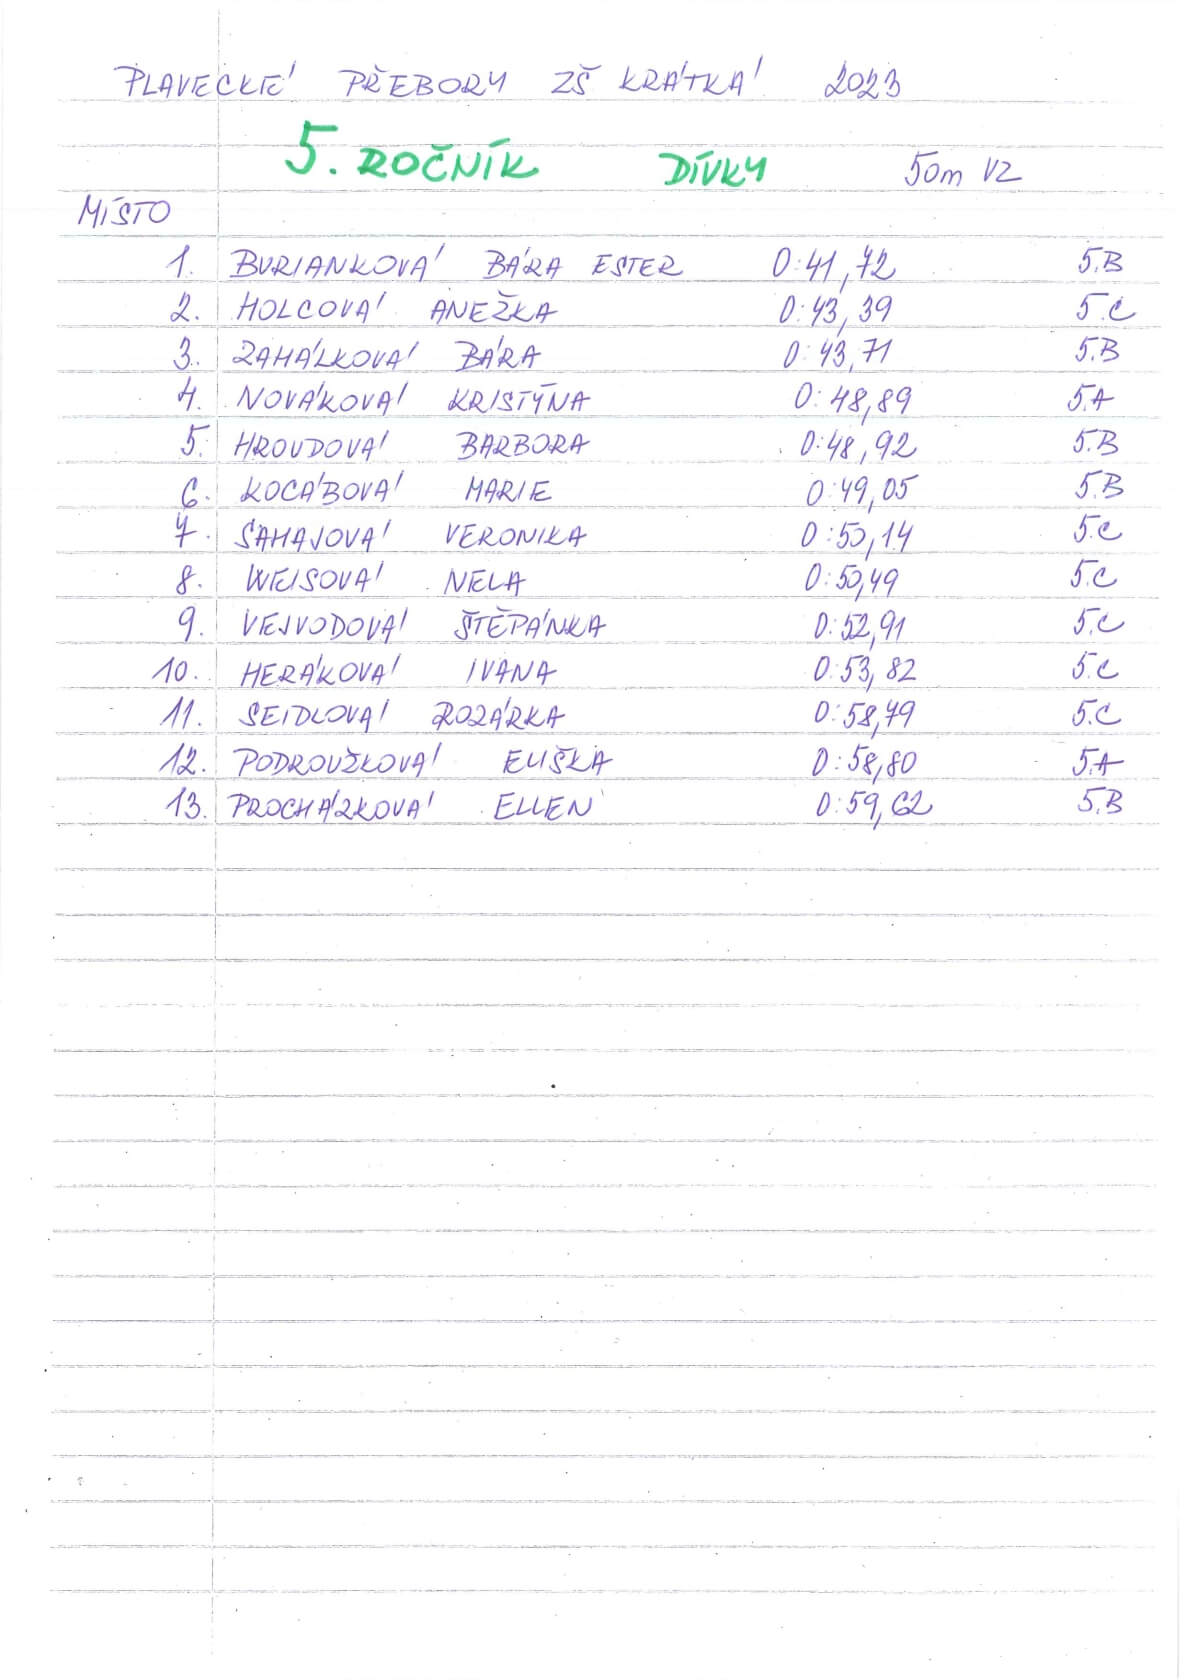 PLAVECKÉ PŘEBORY ZŠ KRÁTKÁ 2023
5. ROČNÍK DÍVKY 50m VZ
MÍSTO
1. BURIANKOVÁ BÁRA ESTER 0:41,72 5.B
2. HOLCOVÁ ANEŽKA 0:43,39 5.C
3. ZAHÁLKOVÁ BÁRA 0:43,71 5.B
4. NOVÁKOVÁ KRISTÝNA 0:48,89 5.A
5. HROUDOVÁ BARBORA 0:48,92 5.B
6. KOCÁBOVÁ MARIE 0:49,05 5.B
7. SAHAJOVÁ VERONIKA 0:50,14 5.C
8. WEISOVÁ NELA 0:50,49 5.C
9. VEJVODOVÁ ŠTĚPÁNKA 0:52,91 5.C
10. HERÁKOVÁ IVANA 0:53,82 5.C
11. SEIDLOVÁ ROZÁRKA 0:58,79 5.C
12. PODROUŽKOVÁ ELIŠKA 0:58,80 5.A
13. PROCHÁZKOVÁ ELLEN 0:59,62 5.B